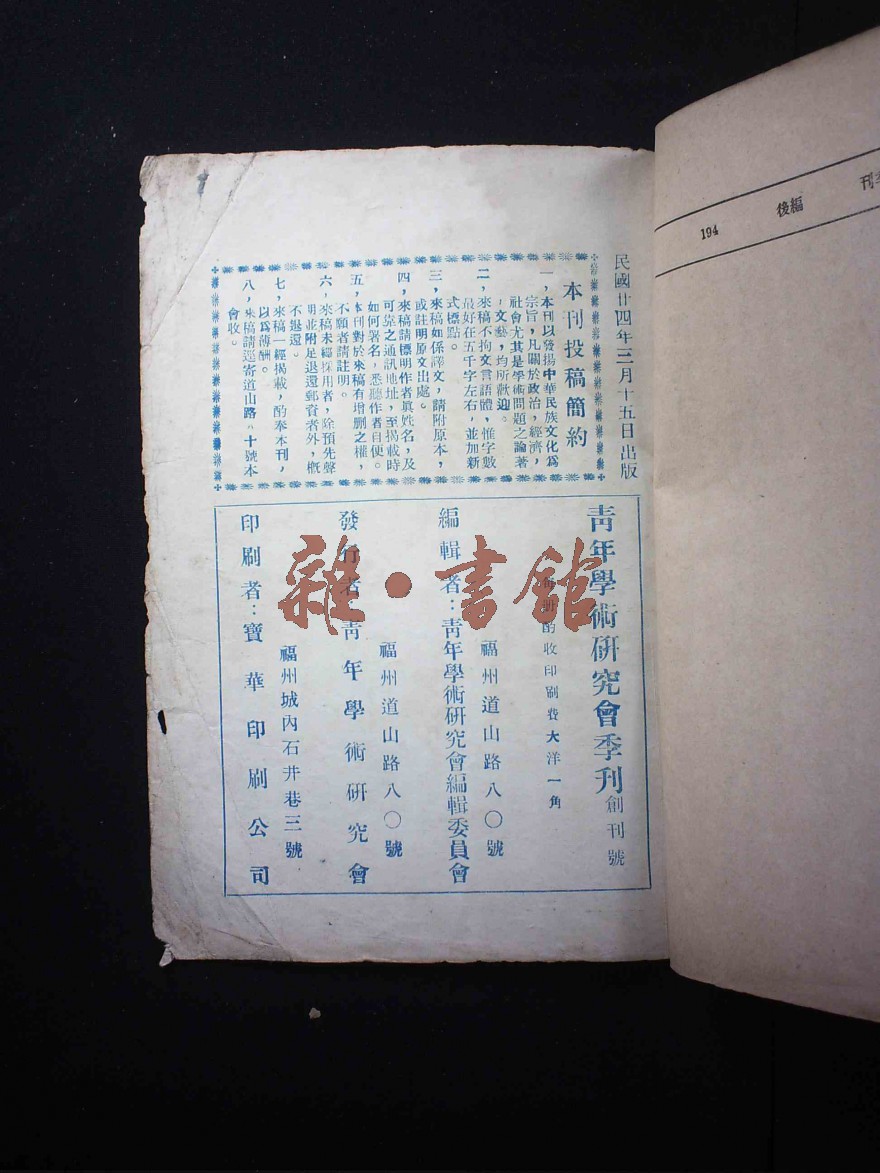 民國廿四年三月十五日出版
本刊投稿簡約
一，本刊以發揚中華民族文化爲
宗旨，凡關於政治，經濟，
社會尤其是學術問題之論著
，文藝，均所歡迎。
二，來稿不拘文言語體，惟字數
最好在五千字左右，並加新
式標點。
三，來稿如係譯文，請附原本，
或註明原文出處。
四，來稿請標明作者眞姓名，及
可靠之通訊地址，至揭載時
如何署名，悉聽作者自便。
五，本刊對於來稿有增删之權，
不願者請註明。
六，來稿未經採用者，除預先聲
明並附足退還郵資者外，槪
不退還。
七，來稿一經揭載，酌奉本刊，
以爲薄酬。
八，來稿請逕寄道山路 十號本
會收。
靑年學術硏究會季刊創刊號
每册酌收印刷費大洋一角
福州道山路八〇號
編輯者：靑年學術硏究會編輯委員會
福州道山路八〇號
發行者：靑年學術硏究會
福州城內石井巷三號
印刷者：寶華印刷公司
雜·書館
194 後編 刊